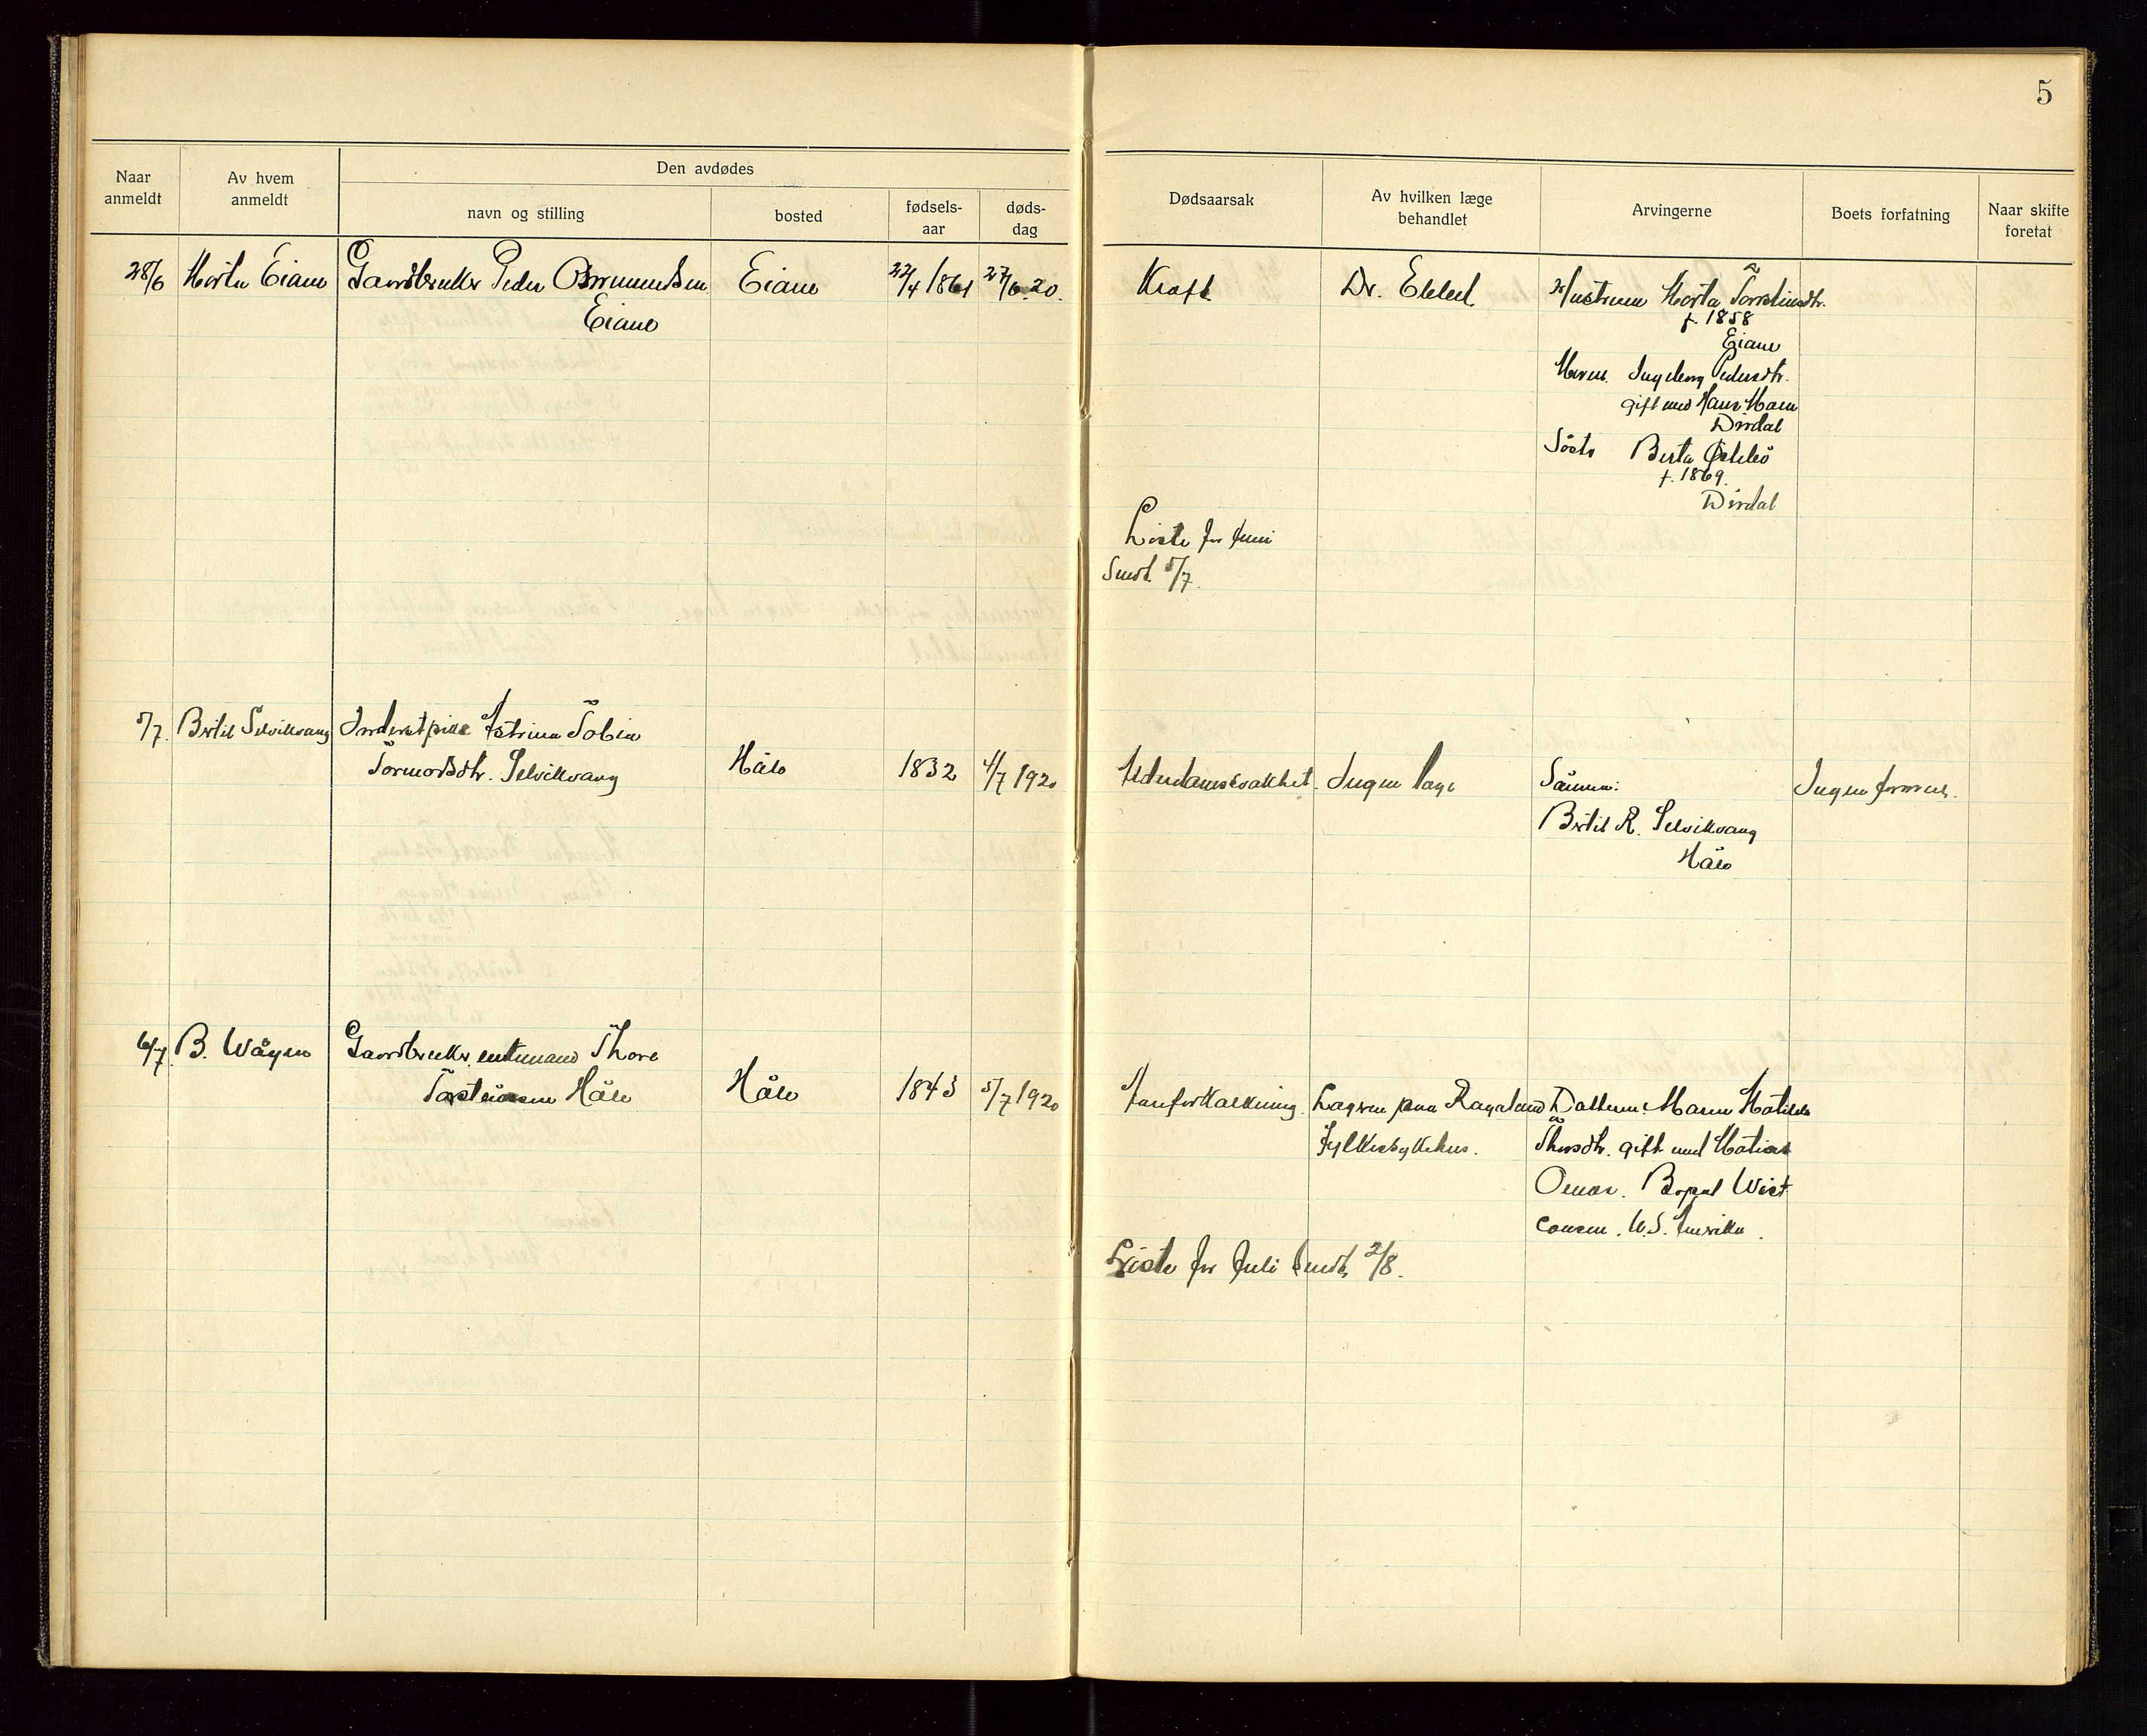 5
Naar anmeldt
Av hvem anmeldt
Den avdødes
navn og stilling
bosted
fødsels-aar
døds-dag
Dødsaarsak
Av hvilken læge behandlet
Arvingerne
Boets forfatning
Naar skifte foretat
28/6 Marta Eiane Gaardbruker Peder Osmundsen Eiane 22/4 1861 27/6 20. Kræft Dr. Hustruen Marta Torsteinsdtr.
Eiane
f. 1858
Eiane
Ingeborg Pedersdtr.
gift med Hans Moen
Dirdal
Søster Berta
f. 1869.
Dirdal
Liste for Juni
Sendt 5/7.
5/7. Bertil Selvikvaag Inderstpike Tobia
Tormodsdtr. Selvikvaag Håle 1832 4/7 1920 Alderdomssvakhet. Ingen læge Sønnen: Ingen formue.
Bertil R. Selvikvaag
Håle
6/7. B. Wågen Gaardbruker enkemand Thore
Torsteinsen Håle Håle 1843 5/7 1920 Aareforkalkning. Lægen paa Rogaland Datteren: Maren Matilde
Fylkesykehus. Thorsdtr. gift med Matias
Wist
consin. U.S. Amerika.
Liste for Juli sendt 2/8.